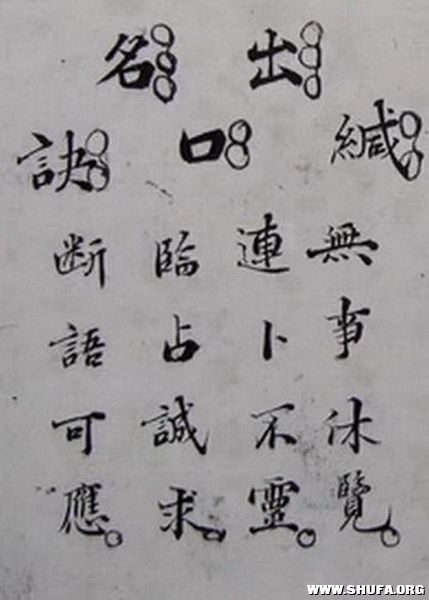 出名
緘口訣
無事休覽
連卜不靈
臨占誠求
断語可應
WWW.SHUFA.ORG